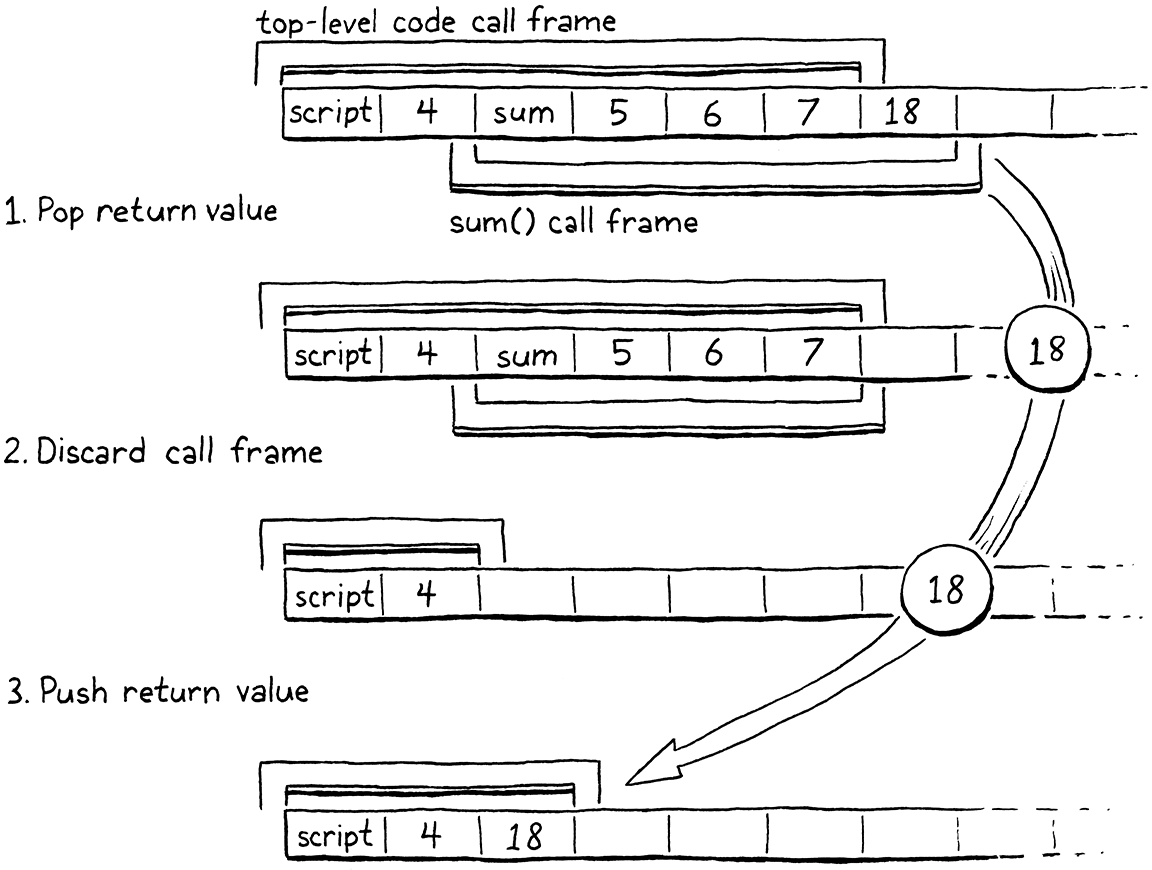 top-level code call frame
script 4 sum 5 6 7 18
1. Pop return value
sum() call frame
script 4 sum 5 6 7
18
2. Discard call frame
script 4
18
3. Push return value
script 4 18